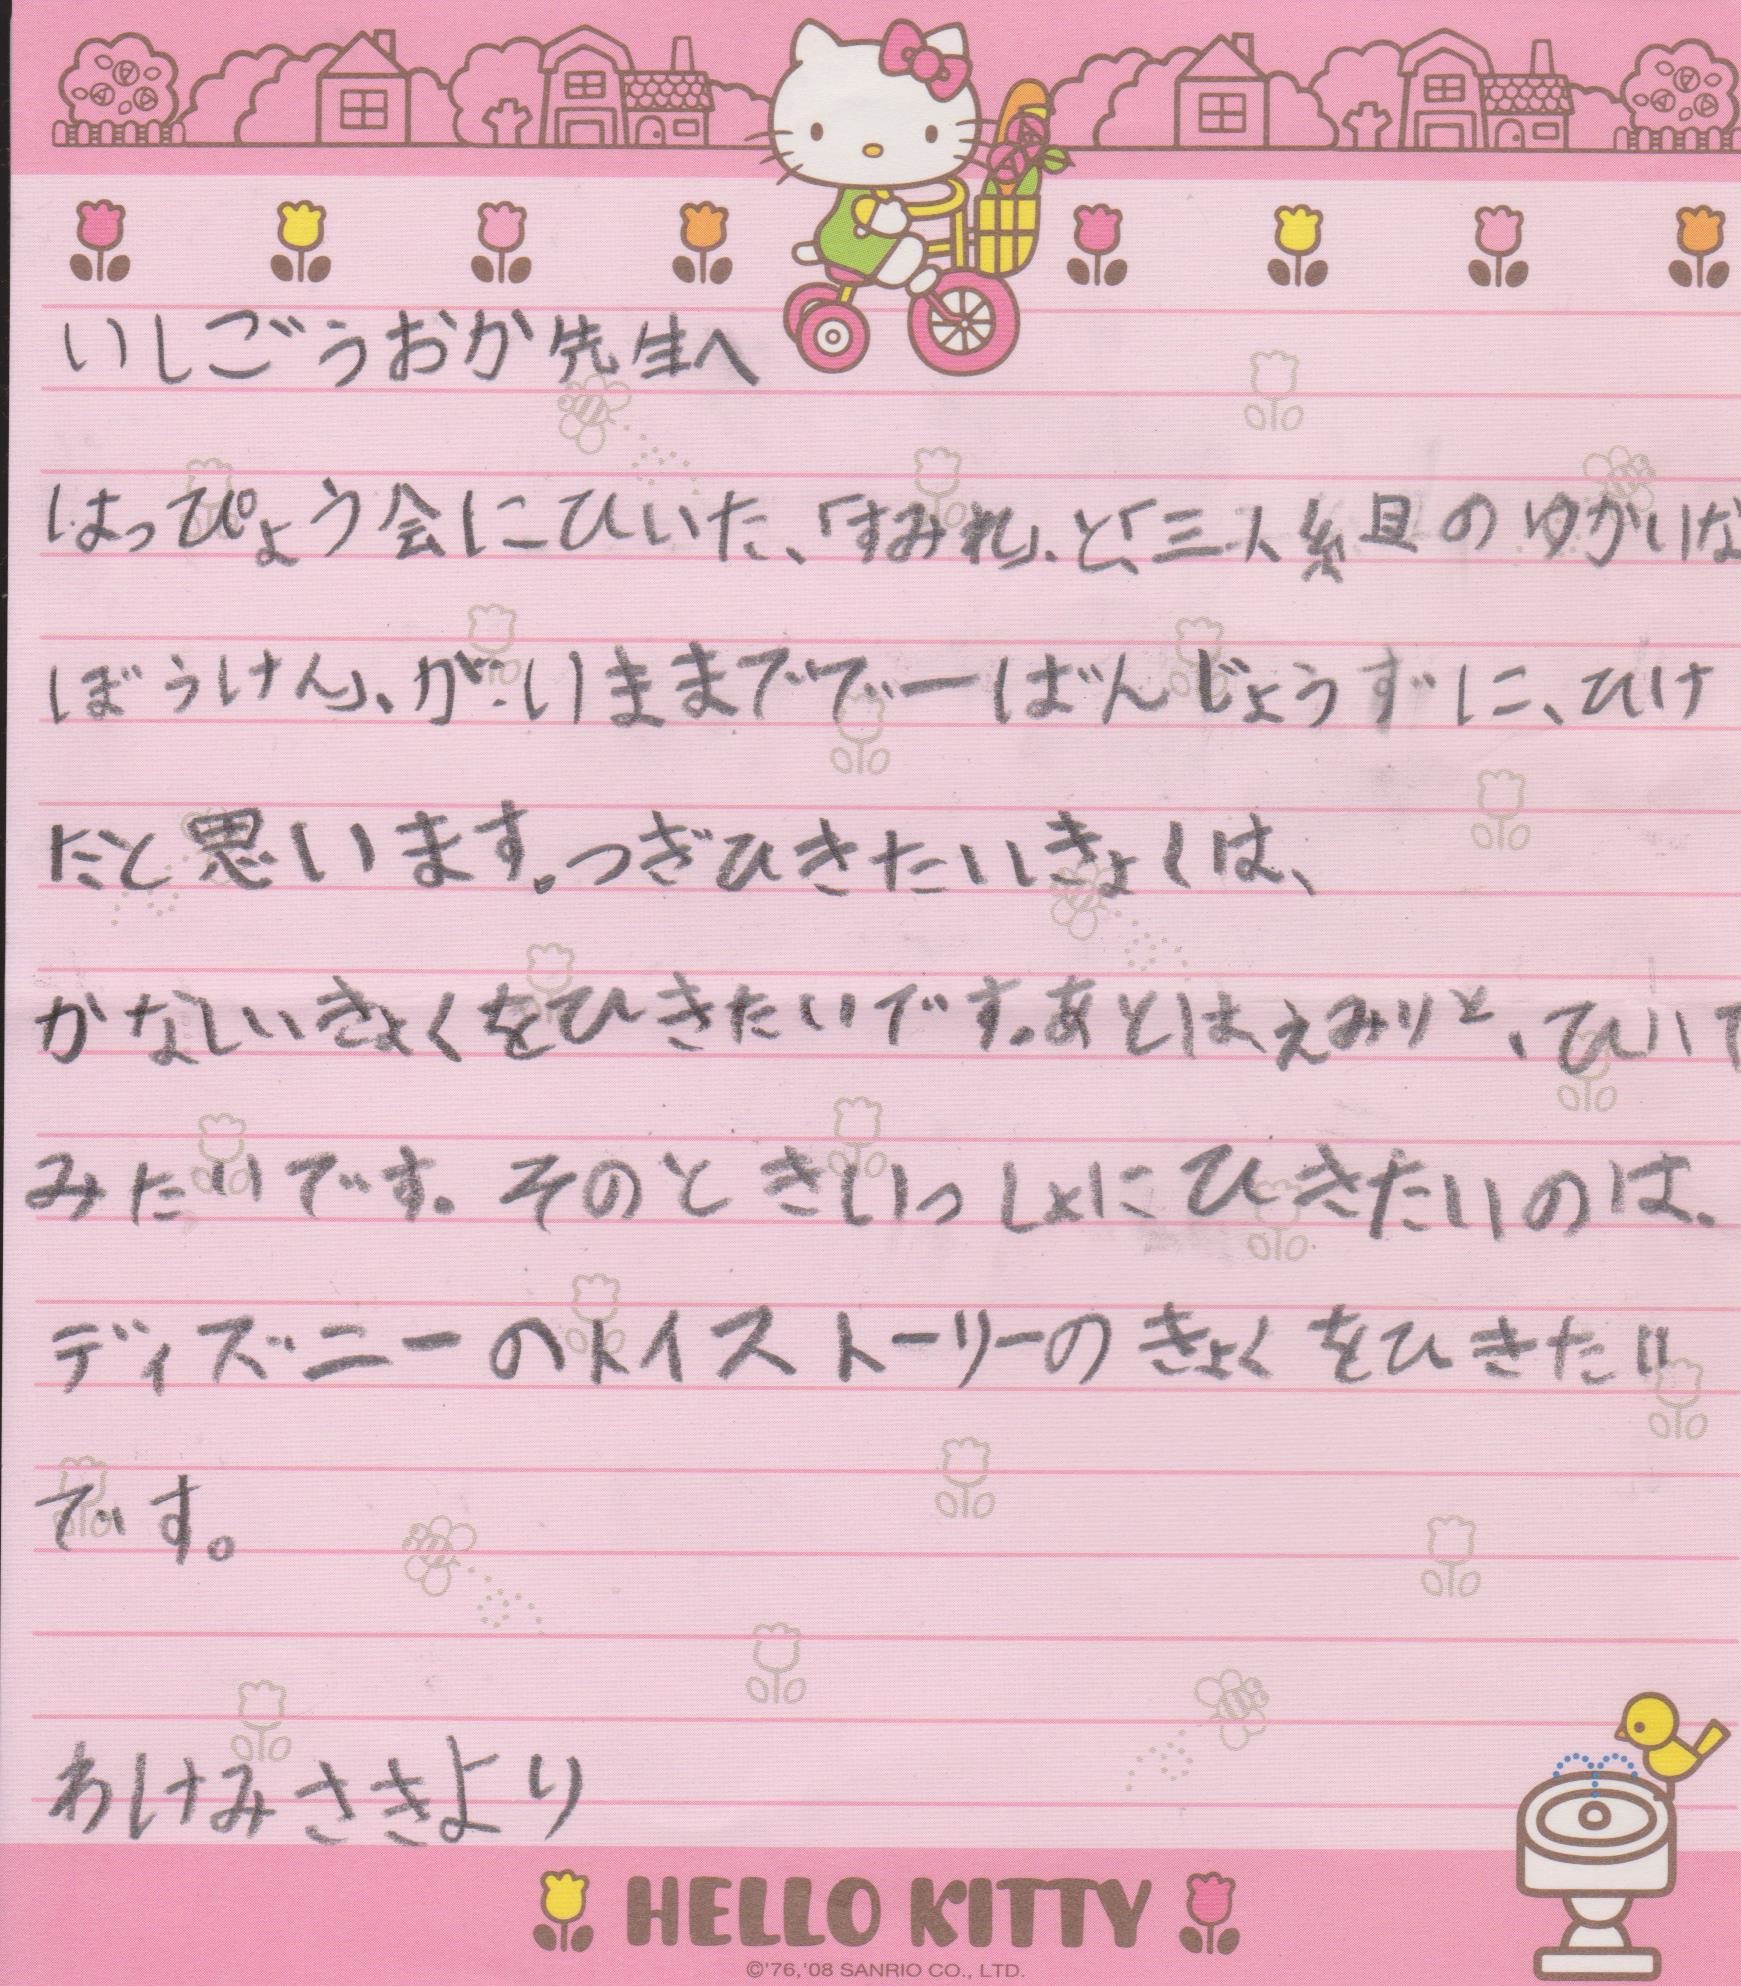 いしごうおか先生へ
はっぴょう会にひいた、「すみれ」、と、「三人組のゆかいな
ぼうけん」、が、いままでで一ばんじょうずに、ひけ
たと思います。つぎひきたいきょくは、
かなしいきょくをひきたいです。あとは、えみりと、ひいて
みたいです。そのときいっしょにひきたいのは、
ディズニーのトイストーリーのきょくをひきたい
です。
わけみさきより
HELLO KITTY
©'76,'08 SANRIO CO., LTD.